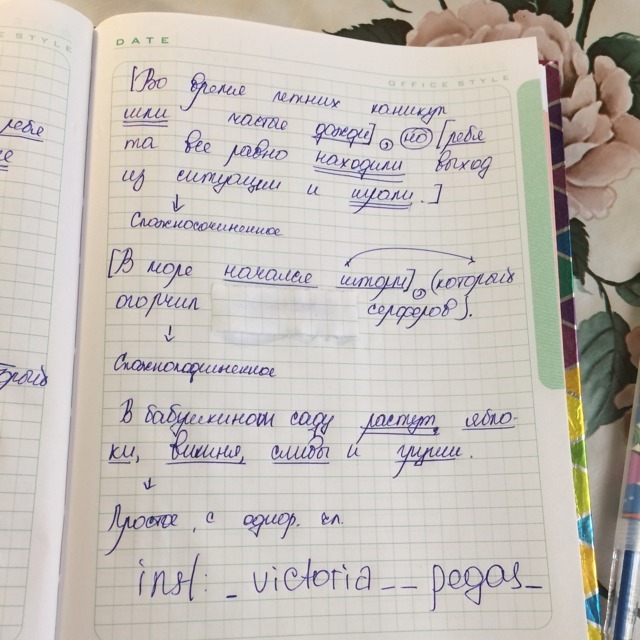 CE STYLE
DATE
OFFICE STYLE
[Во время летних каникул
шли частые дожди], но [ребя
та все равно находили выход
из ситуации и играли.]
↓
Сложносочиненное
[В море начался шторм], (который
огорчил серферов).
↓
Сложноподчиненное
В бабушкином саду растут ябло-
ки, вишня, сливы и груши.
↓
Простое, с однор. чл.
inst: _victoria__pegas_